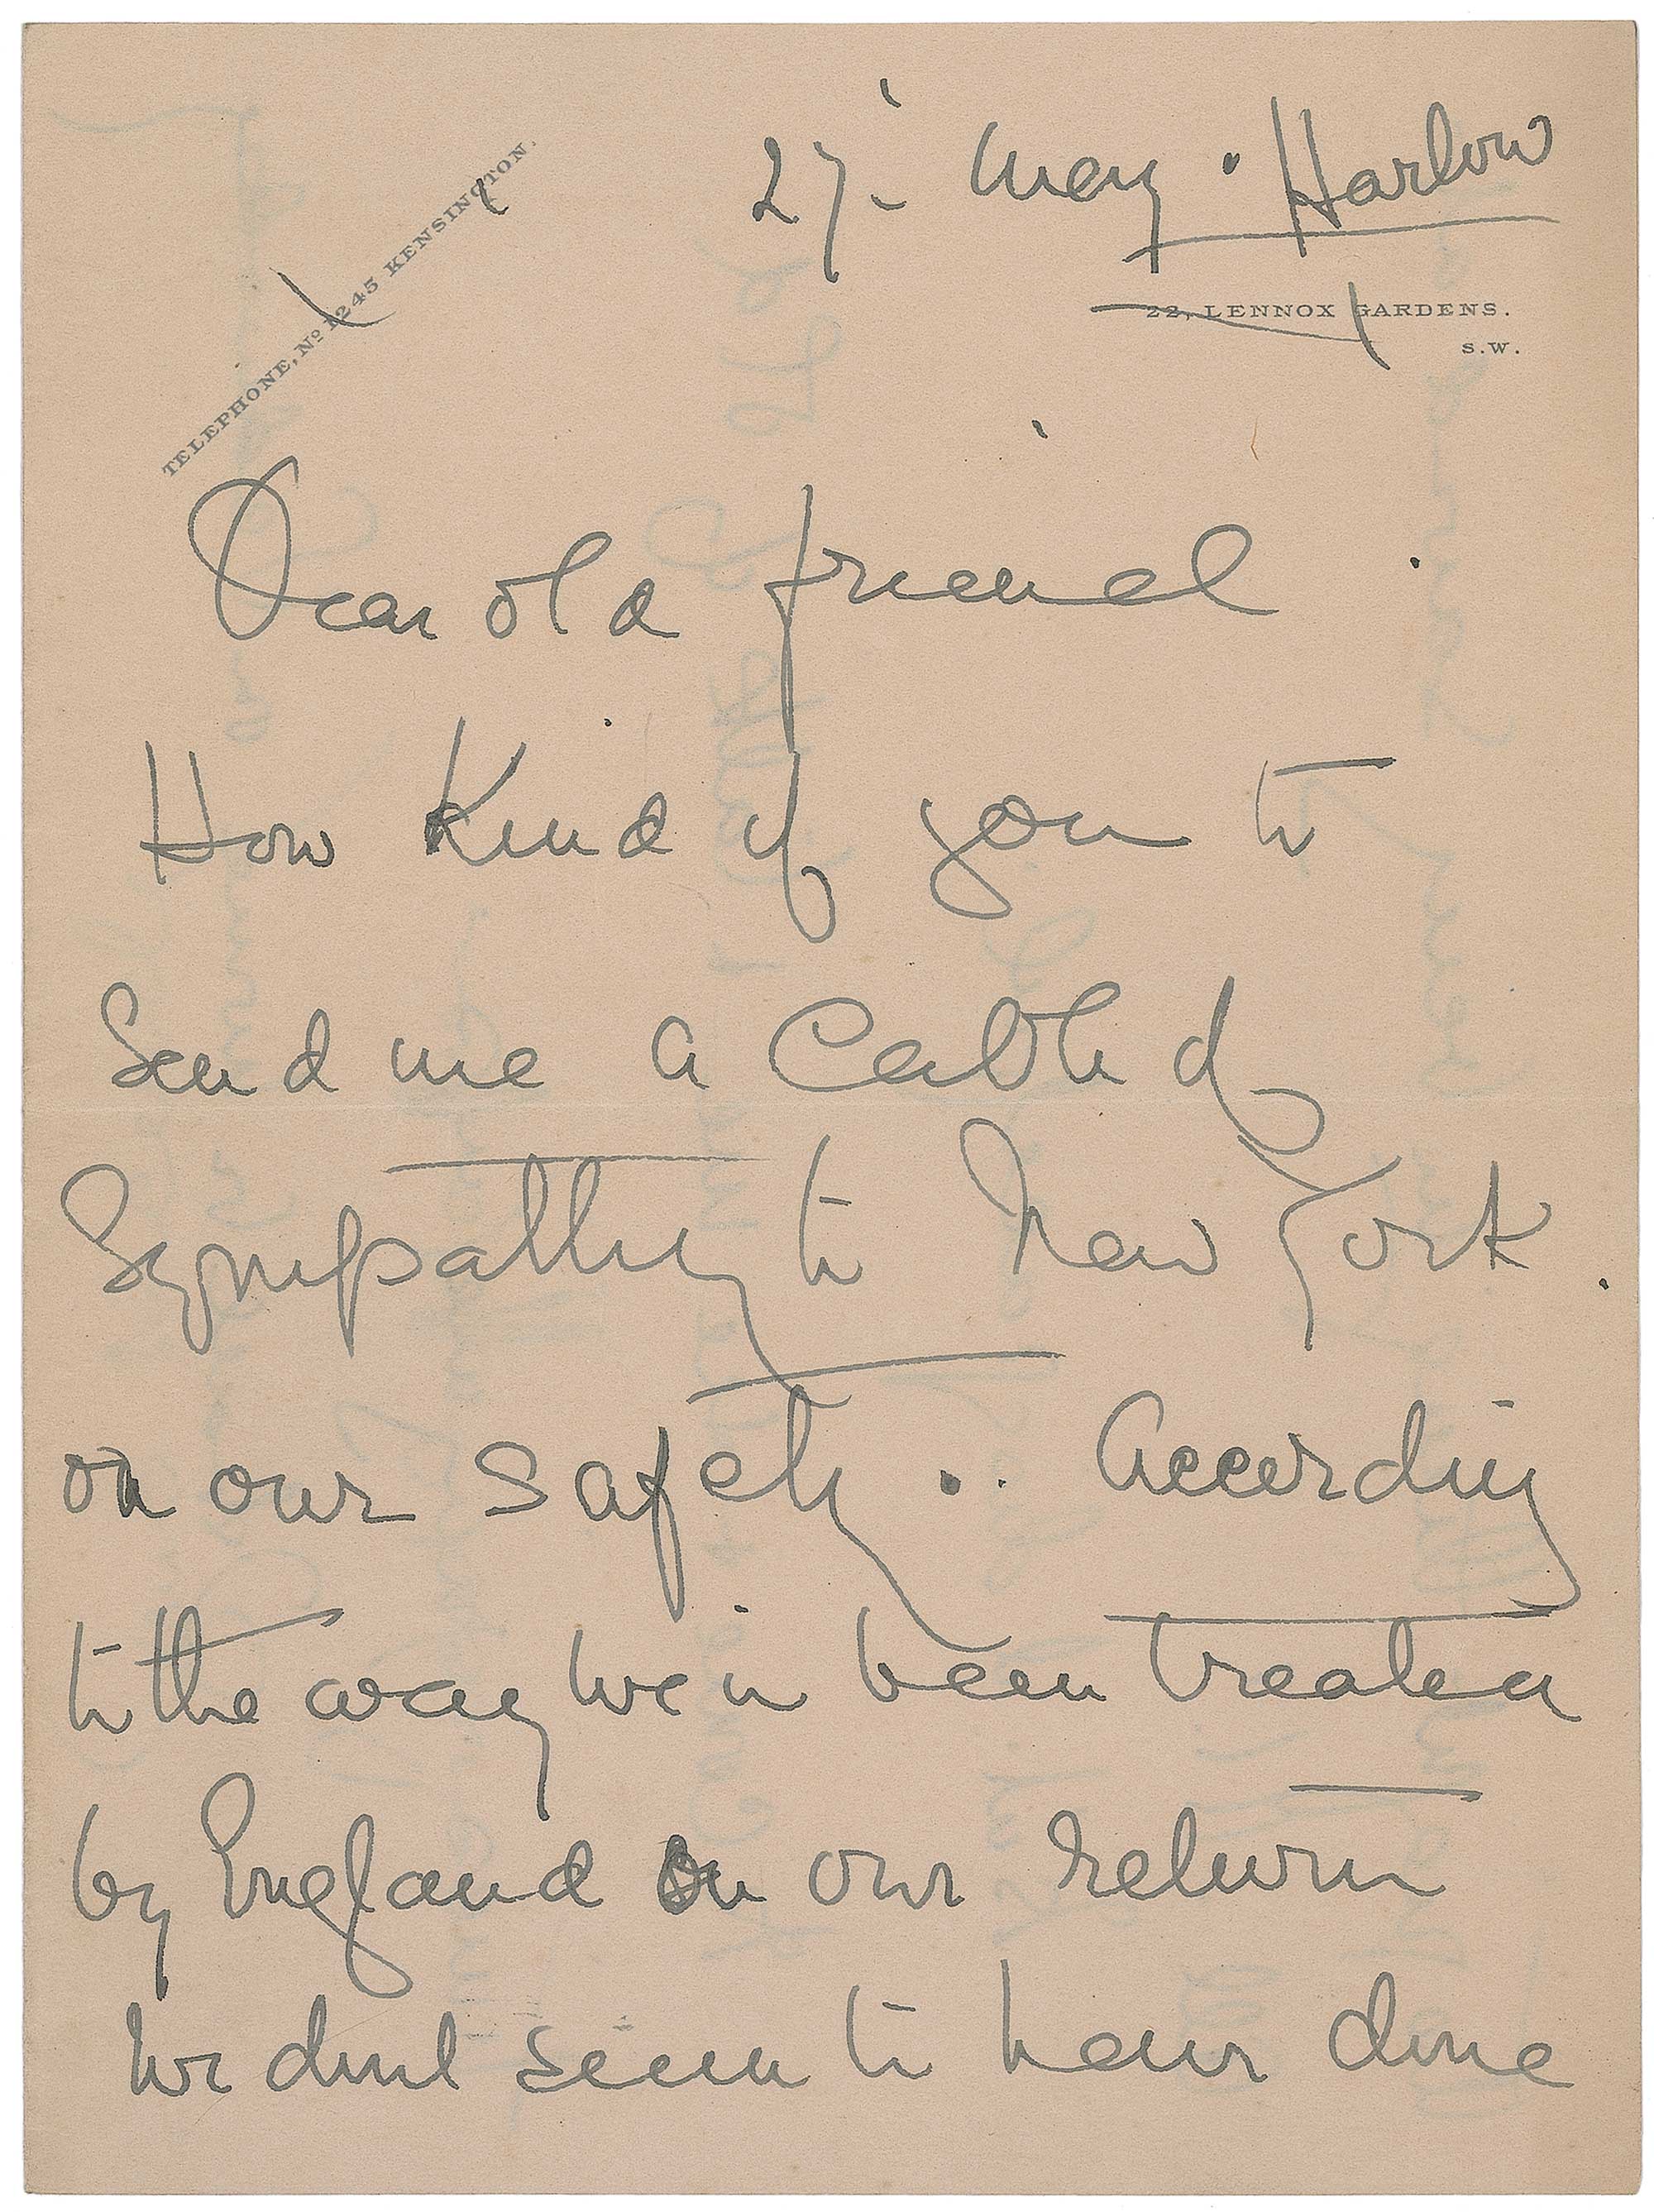 27 May. Harlow
TELEPHONE, Nº 1245 KENSINGTON.
22, LENNOX GARDENS.
S.W.
Dear old friend.
How Kind of you to
Send me a Cable of
Sympathy to New York.
on our safety.. According
to the way we've been treated
by England on our return
we dont seem to have done